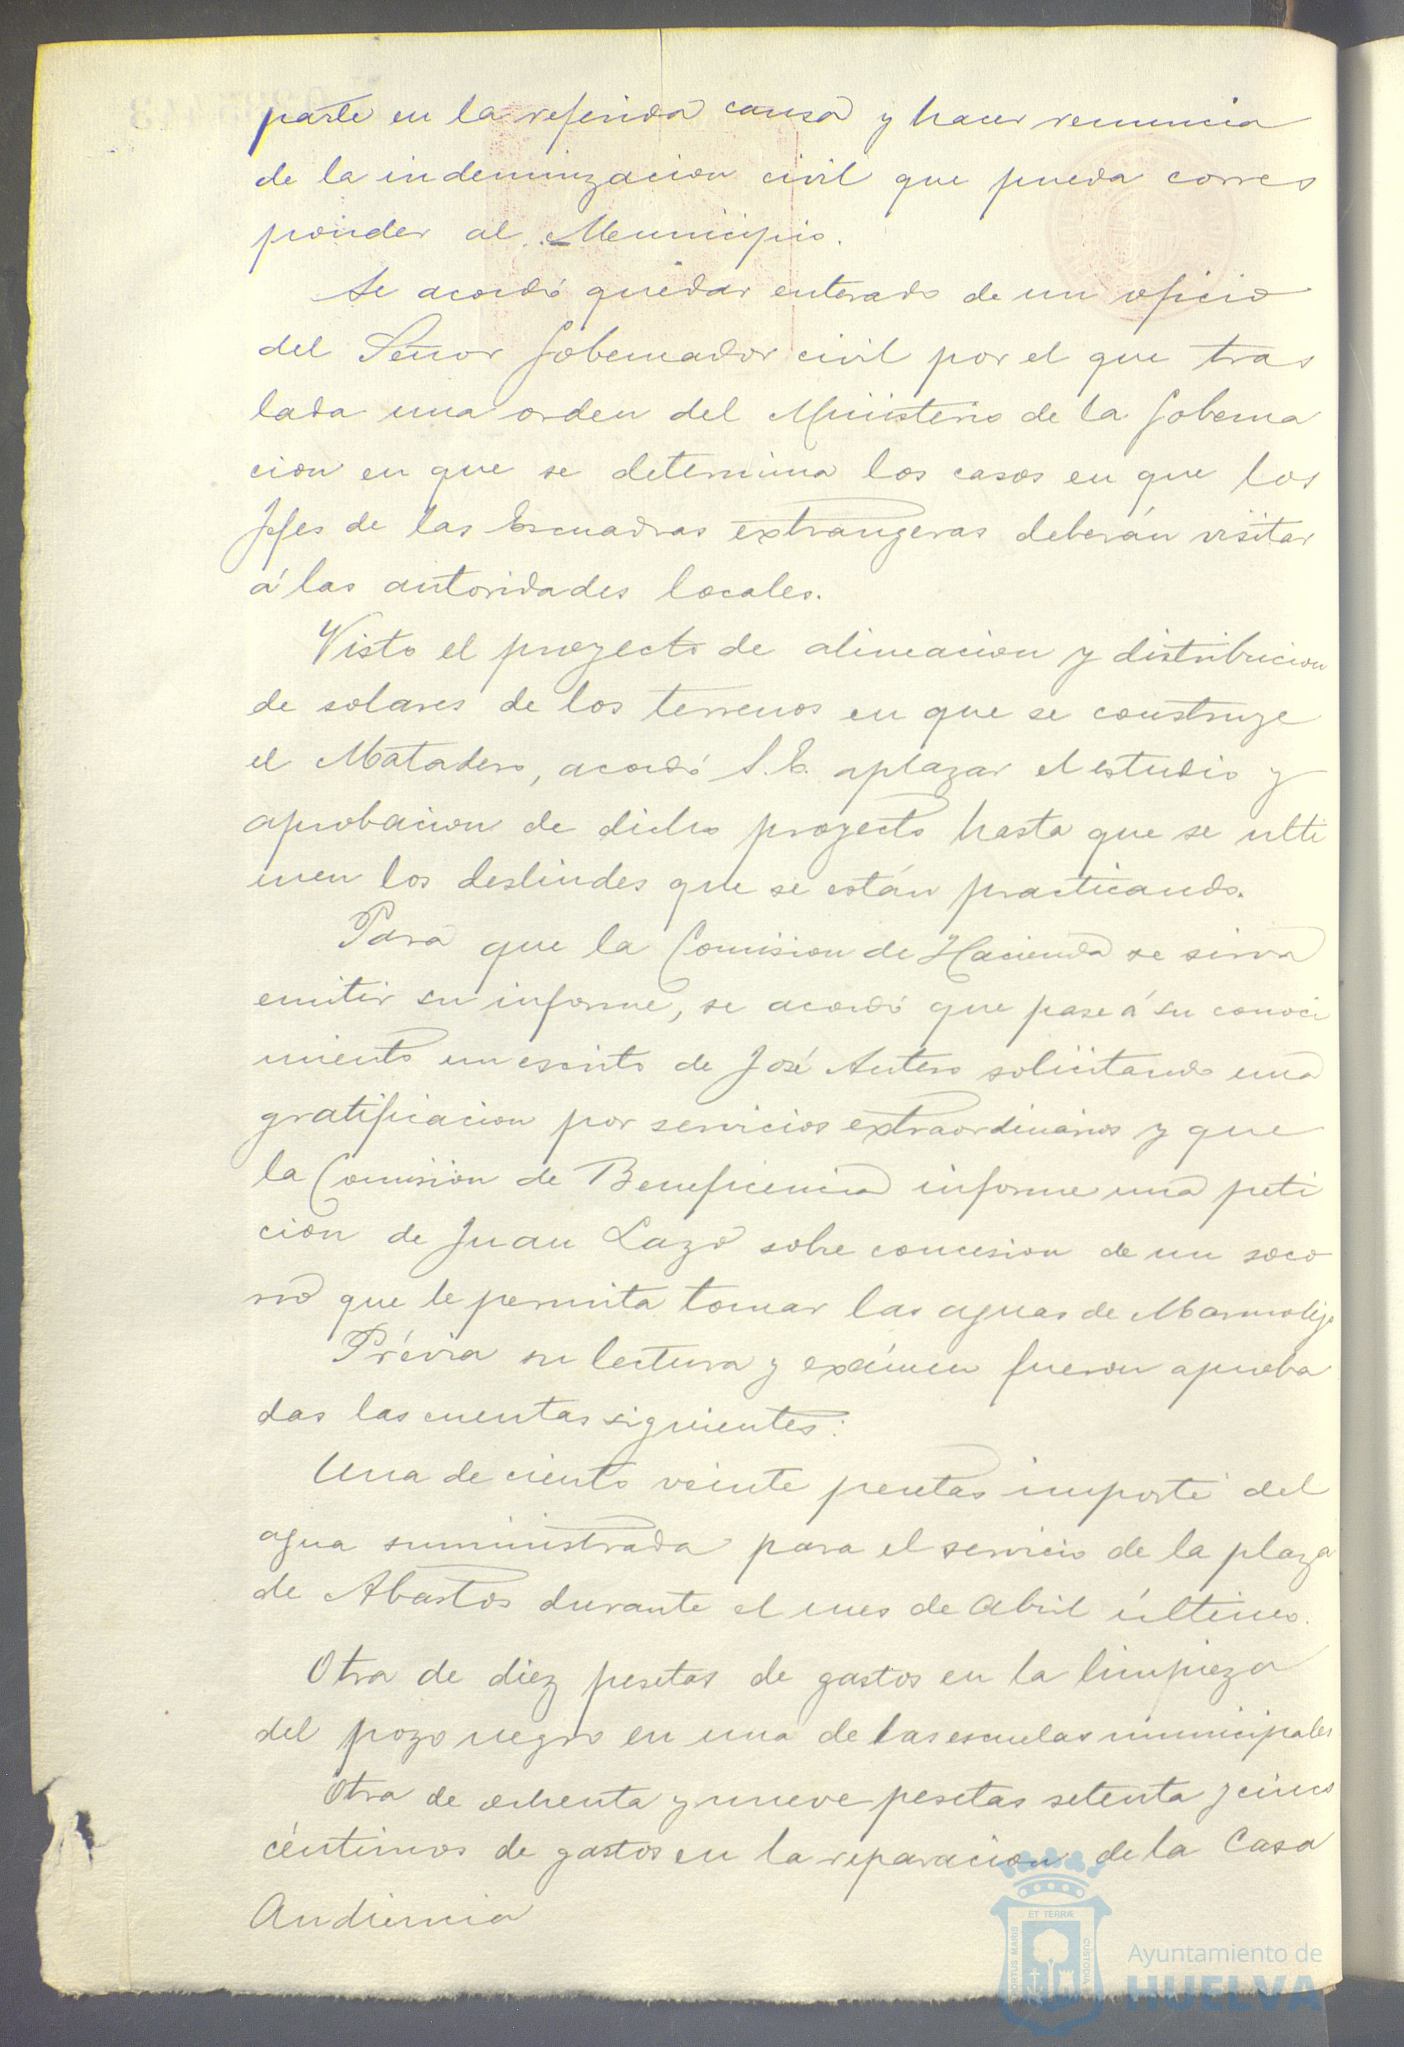 parte en la referida causa y hacer renuncia
de la indemnizacion civil que pueda corres
ponder al Municipio.
Se acordó quedar enterado de un oficio
del Señor Gobernador civil por el que tras
lada una orden del Ministerio de la Goberna
cion en que se determina los casos en que los
Jefes de las Escuadras extrangeras deberán visitar
á las autoridades locales.
Visto el proyecto de alineacion y distribucion
de solares de los terrenos en que se construye
el Matadero, acordó S.E. aplazar el estudio y
aprobacion de dicho proyecto hasta que se ulti
men los deslindes que se están practicando.
Para que la Comision de Hacienda se sirva
emitir su informe, se acordó que pase á su conoci
miento un escrito de José Antero solicitando una
gratificacion por servicios extraordinarios y que
la Comision de Beneficencia informe una peti
cion de Juan Lazo sobre concesion de un soco
rro que le permita tomar las aguas de Marmolejo
Prévia su lectura y exámen fueron aproba
das las cuentas siguientes:
Una de ciento veinte pesetas importe del
agua suministrada para el servicio de la plaza
de Abastos durante el mes de Abril último.
Otra de diez pesetas de gastos en la limpieza
del pozo negro en una de las escuelas municipales
Otra de ochenta y nueve pesetas setenta y cinco
céntimos de gastos en la reparacion de la Casa
Audiencia
ET TERRÆ
PORTUS MARIS
CUSTODIA
Ayuntamiento de
HUELVA